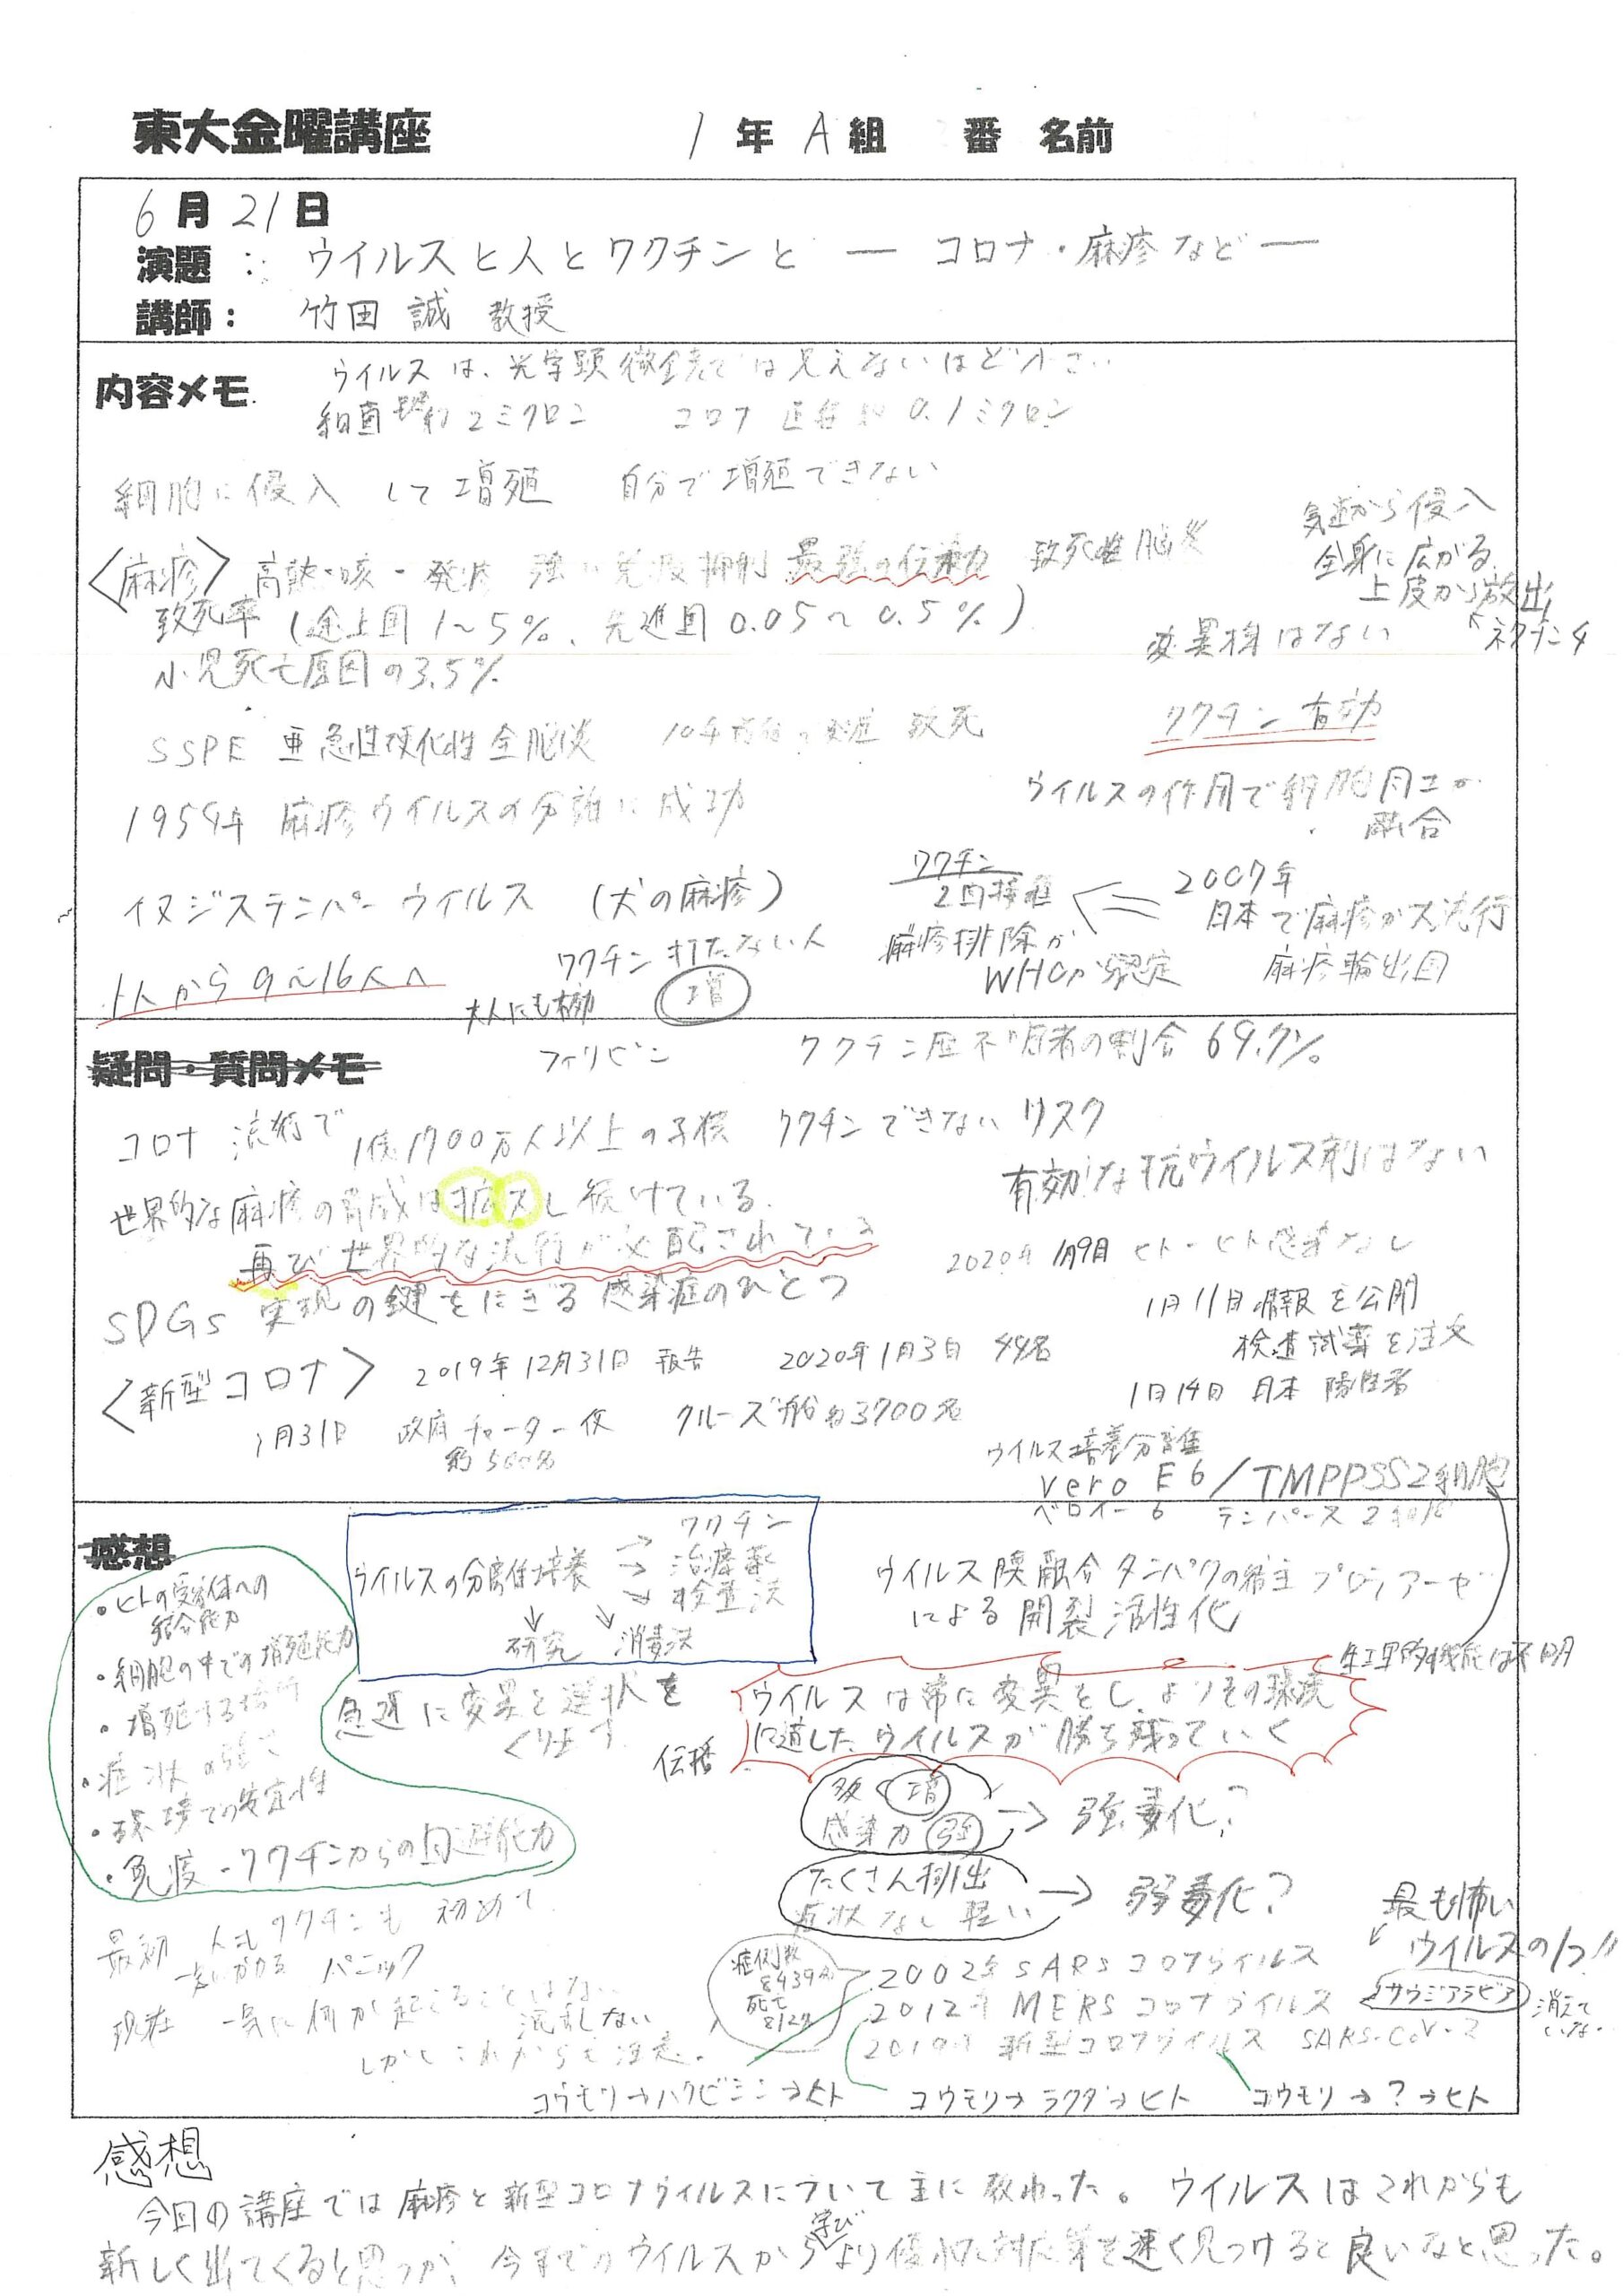 東大金曜講座 1年 A組 番 名前
6月21日
演題： ウイルスと人とワクチンと ― コロナ・麻疹など ―
講師： 竹田 誠 教授
内容メモ
ウイルスは、光学顕微鏡では見えないほど小さい
細菌 約2ミクロン コロナ 直径 約0.1ミクロン
細胞に侵入して増殖 自分で増殖できない
〈麻疹〉高熱・咳・発疹 強い免疫抑制 最強の伝染力 致死性脳炎
気道から侵入
全身に広がる
上皮から放出
↖ネクチン4
致死率(途上国1～5%、先進国0.05～0.5%)
変異株はない
小児死亡原因の3.5%
SSPE 亜急性硬化性全脳炎 10年 発症 致死
ワクチン有効
1954年 麻疹ウイルスの分離に成功
ウイルスの作用で細胞同士が
融合
イヌジステンパーウイルス (犬の麻疹)
ワクチン
2回接種
麻疹排除が
WHOから認定
2007年
日本で麻疹が大流行
麻疹輸出国
1人から9～16人へ
ワクチン打たない人
増
大人にも
疑問・質問メモ
フィリピン
ワクチン歴不明者の割合 69.7%
コロナ流行で1億1700万人以上の子供 ワクチンできないリスク
有効な抗ウイルス剤はない
世界的な麻疹の脅威は拡大し続けている。
再び世界的な流行が心配されている
SDGs 実現の鍵をにぎる感染症のひとつ
2020年 1月9日 ヒト-ヒト感染なし
1月11日 情報を公開
検査試薬を注文
1月14日 日本 陽性者
〈新型コロナ〉 2019年12月31日 報告 2020年1月3日 44名
1月31日 政府チャーター便 クルーズ船 約3700名
約500名
ウイルス培養分離
vero E6/TMPPSS2細胞
ベロイー6 テンパース2細胞
感想
ウイルスの分離培養
→ ワクチン
治療薬
→ 検査法
↓ 研究 ↓ 消毒法
ウイルス膜融合タンパクの宿主プロテアーゼ
による開裂活性化
生理的機能は不明
・ヒトの受容体への
結合能力
・細胞の中での増殖能力
・増殖する場所
・症状の強さ
・環境での安定性
・免疫・ワクチンからの回避能力
急速に変異と選択を
くり返す
伝播
ウイルスは常に変異をし、よりその環境
に適したウイルスが勝ち残っていく
多く増
感染力強 → 強毒化？
たくさん排出
症状なし 軽い → 弱毒化？
最初 人もワクチンも初めて
一気にかかる パニック
現在 一気に何か起こることはない
混乱しない
しかしこれからも注意。
症例数
8439
死亡
812
2002年 SARSコロナウイルス
2012年 MERSコロナウイルス
2019年 新型コロナウイルス SARS-CoV-2
最も怖い
ウイルスの1つ!!
サウジアラビア
消えて
いない
コウモリ→ハクビシン→ヒト コウモリ→ラクダ→ヒト コウモリ→？→ヒト
感想
今回の講座では麻疹と新型コロナウイルスについて主に教わった。ウイルスはこれからも
新しく出てくると思うが、今までのウイルスから学びより優れた対策を速く見つけると良いなと思った。